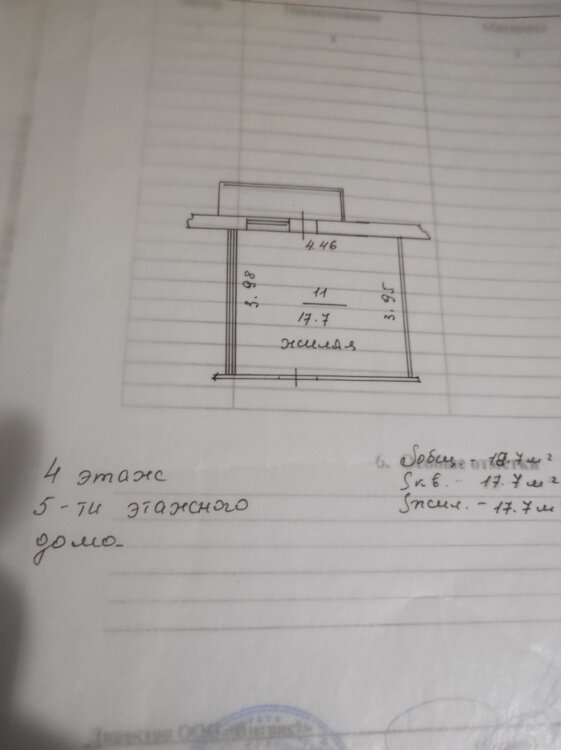 Наименование
4.46
3.98
11
3.95
17.7
жилая
6. Особые отметки
Sобщ. - 17.7 м²
4 этаж
Sкв. - 17.7 м²
5-ти этажного
Sжил. - 17.7 м
дома
Директор ООО